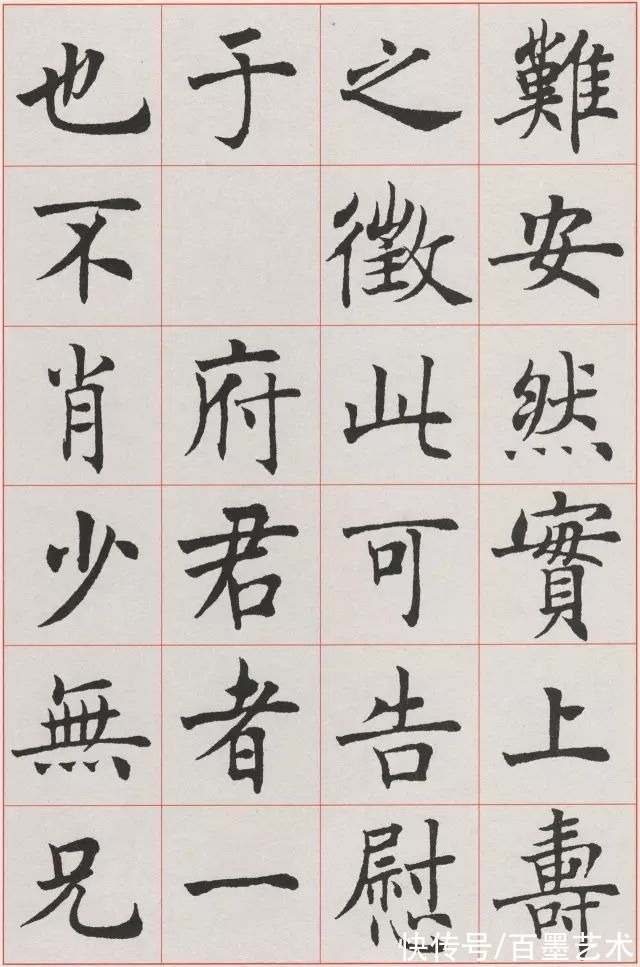 難安然實上壽
之徵此可告慰
于 府君者一
也不肖少無兄
快传号/百墨艺术